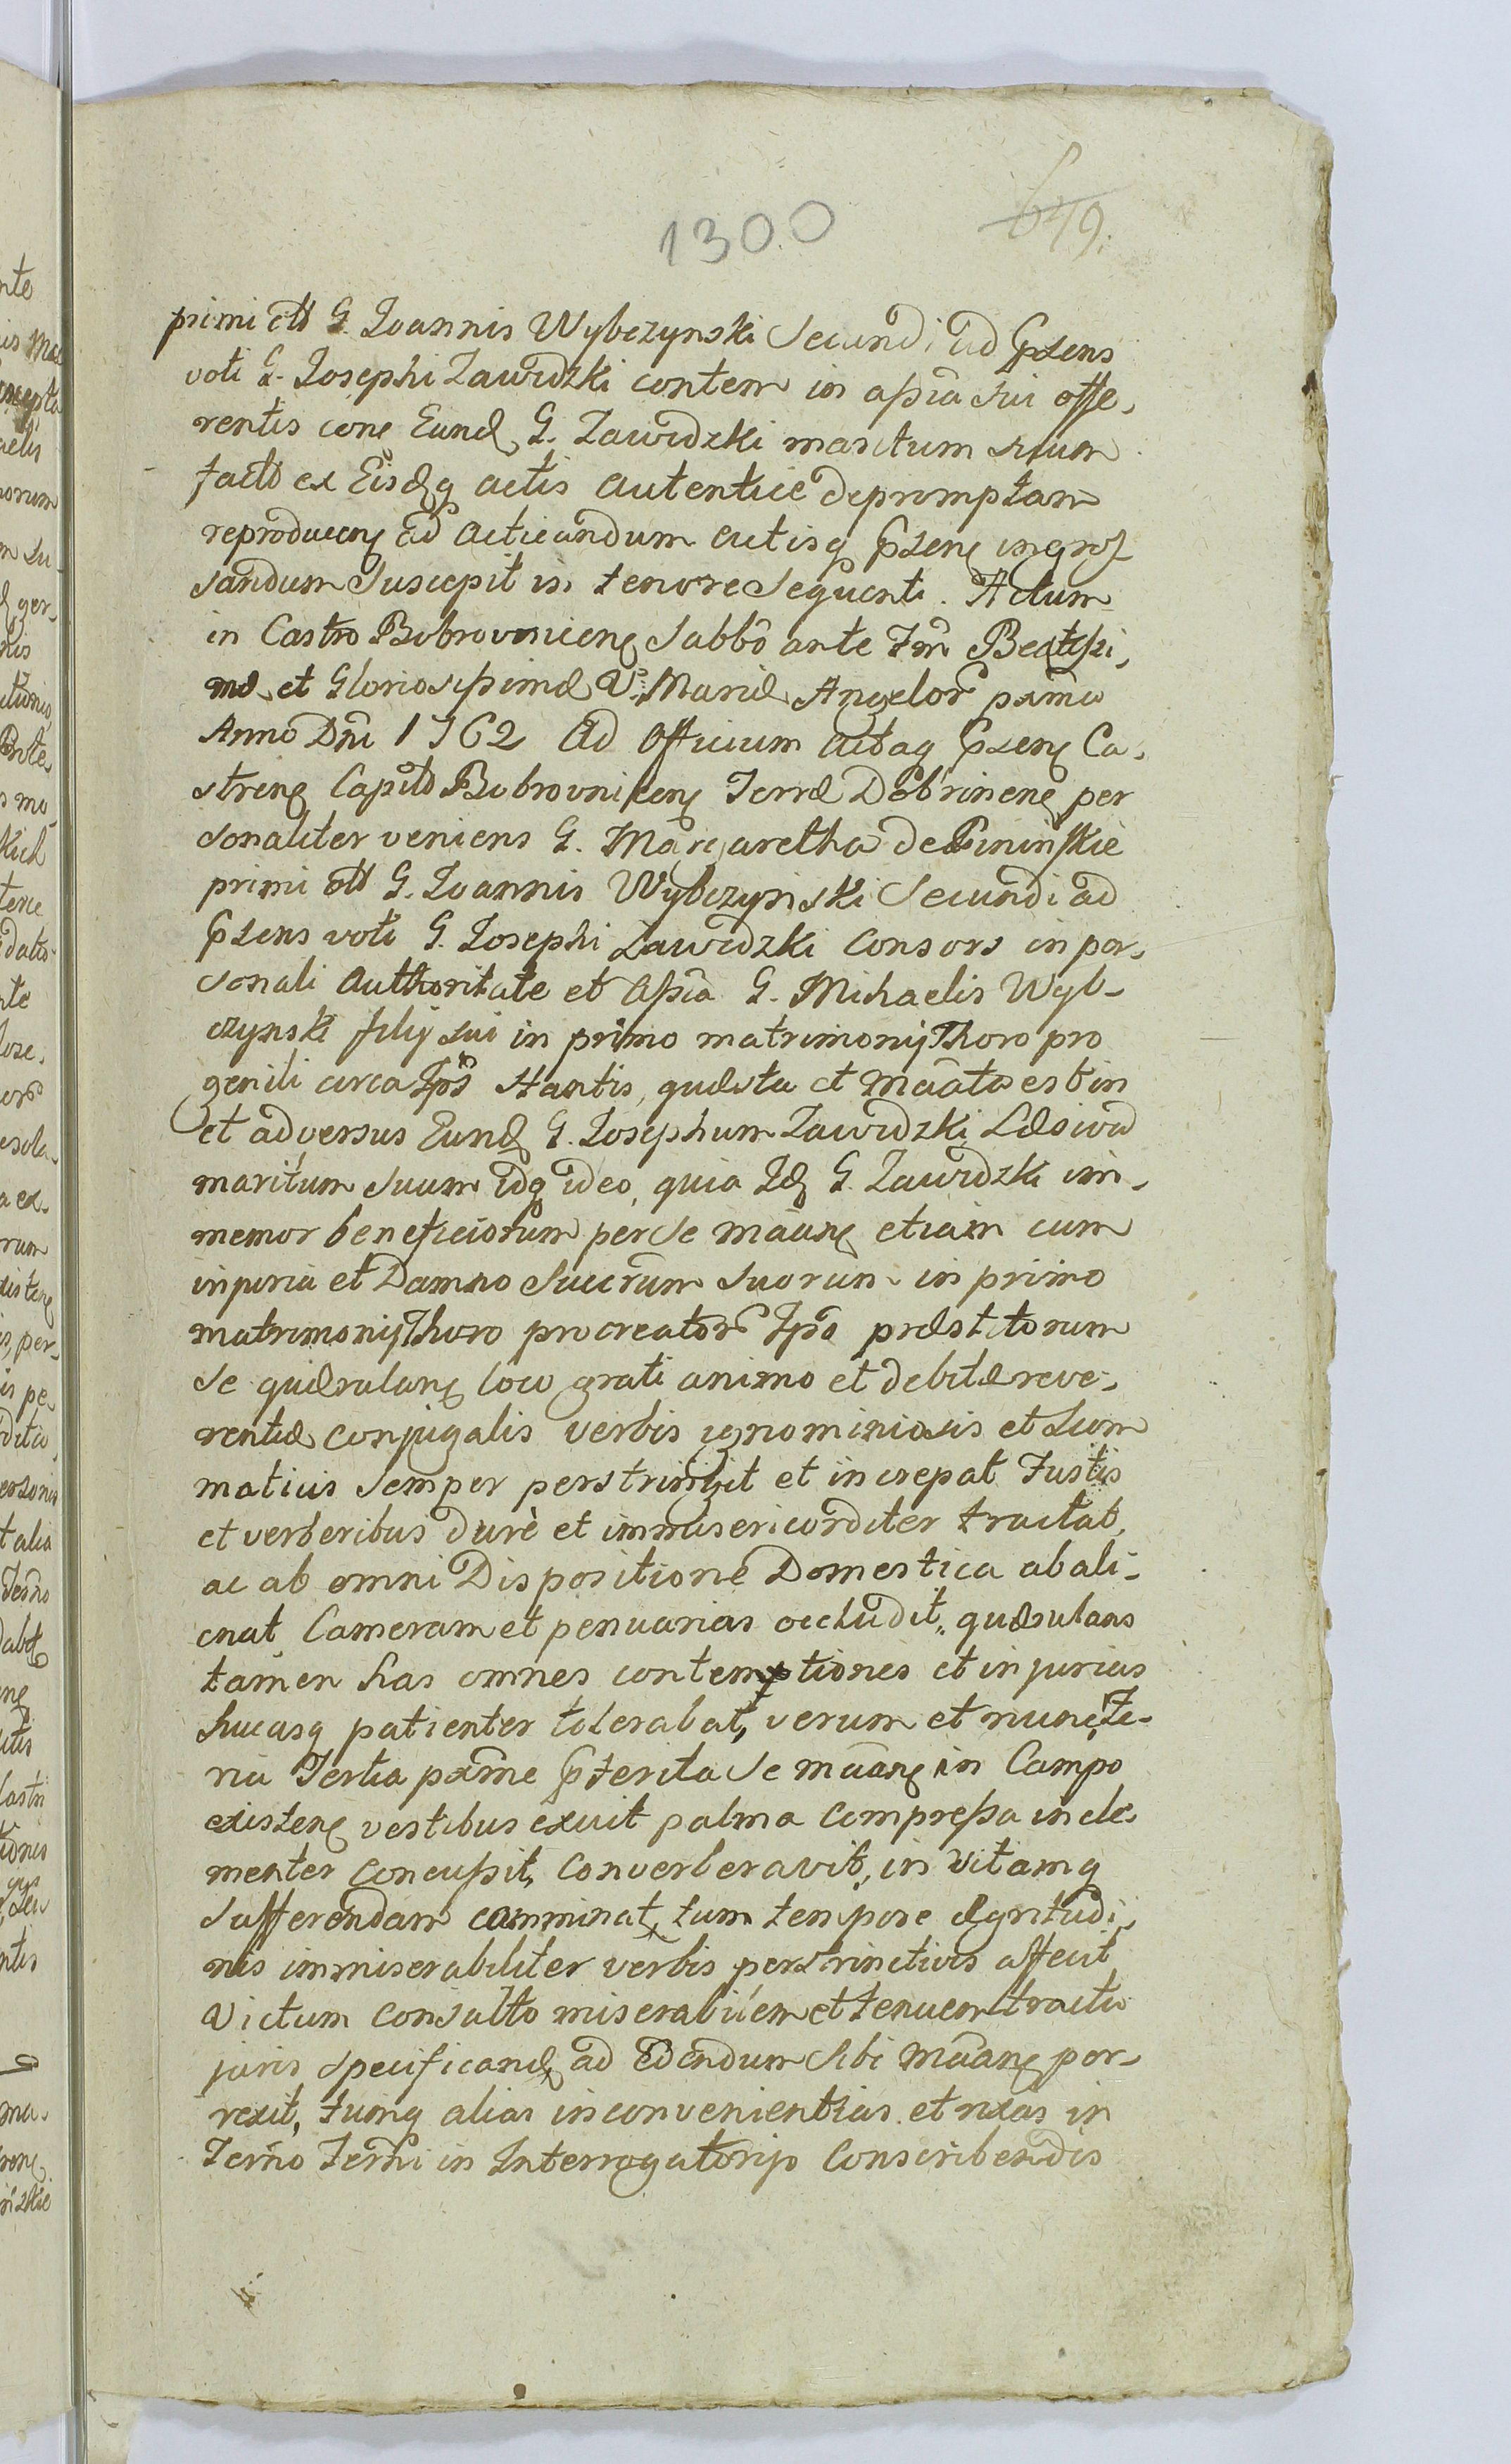 1300
649.
primi ott G. Joannis Wybczynski Secundi ad Pnsens
voti G. Josephi Zawidzki contem in assia sui offe,
rentis cone Eund G. Zawidzki maritum suum
facto ex Eisdq actis autentice depromptam
reproducen ad acticandum actisq Pnsen ingros
sandum suscepit in tenore sequenti. Actum
in Castro Bobrovnicen Sabbo ante Fm Beatssi,
mæ et Gloriosissimæ V. Mariæ Angelor pxma
Anno Dni 1762 Ad Officium Actaq Pnsen Ca,
stren Capit Bobrovnicen Terræ Dobrinen per
sonaliter veniens G. Margaretha de Pininskie
primi ott G. Joannis Wybczynski Secundi ad
Pnsens voti G. Josephi Zawidzki Consors in per,
sonali Authoritate et assia G. Michaelis Wyb-
czynski filij sui in primo matrimonij Thoro pro
geniti circa Ips stantis, quæsta et Maata est in
et adversus Eund G. Josephum Zawidzki Læsivu
maritum suum idq ideo, quia Id G. Zawidzki im,
memor beneficiorum per se maane etiam cum
injuria et Damno Succrum suorum in primo
matrimonij Thoro procreator Ipso præstitorum
se quærulane loco grati animo et debitæ reve,
rentiæ conjugalis verbis ignominiosis et Scom
maticis semper perstringit et increpat Fustis
et verberibus durè et immisericorditer tractat,
ac ab omni Dispositione Domestica abali,
enat Cameram et penuarias occludit, quærulans
tamen has omnes contemptiones et injurias
hucusq patienter tolerabat, verum et nunc Fe-
ria Tertia pxme Pterita se maane in Campo
existen vestibus exuit palma compressa incle
menter concussit, converberavit, in vitamq
sufferendam comminat, tum tempore ægritudi,
nis immiserabiliter verbis perstrinctivis affecit
victum consulto miserabilem et tenuem tractu
juris specificand ad edendum sibi maane por,
rexit, tumq alias inconvenientias et rixas in
Termo Termi in Interrogatorijo conscribendis